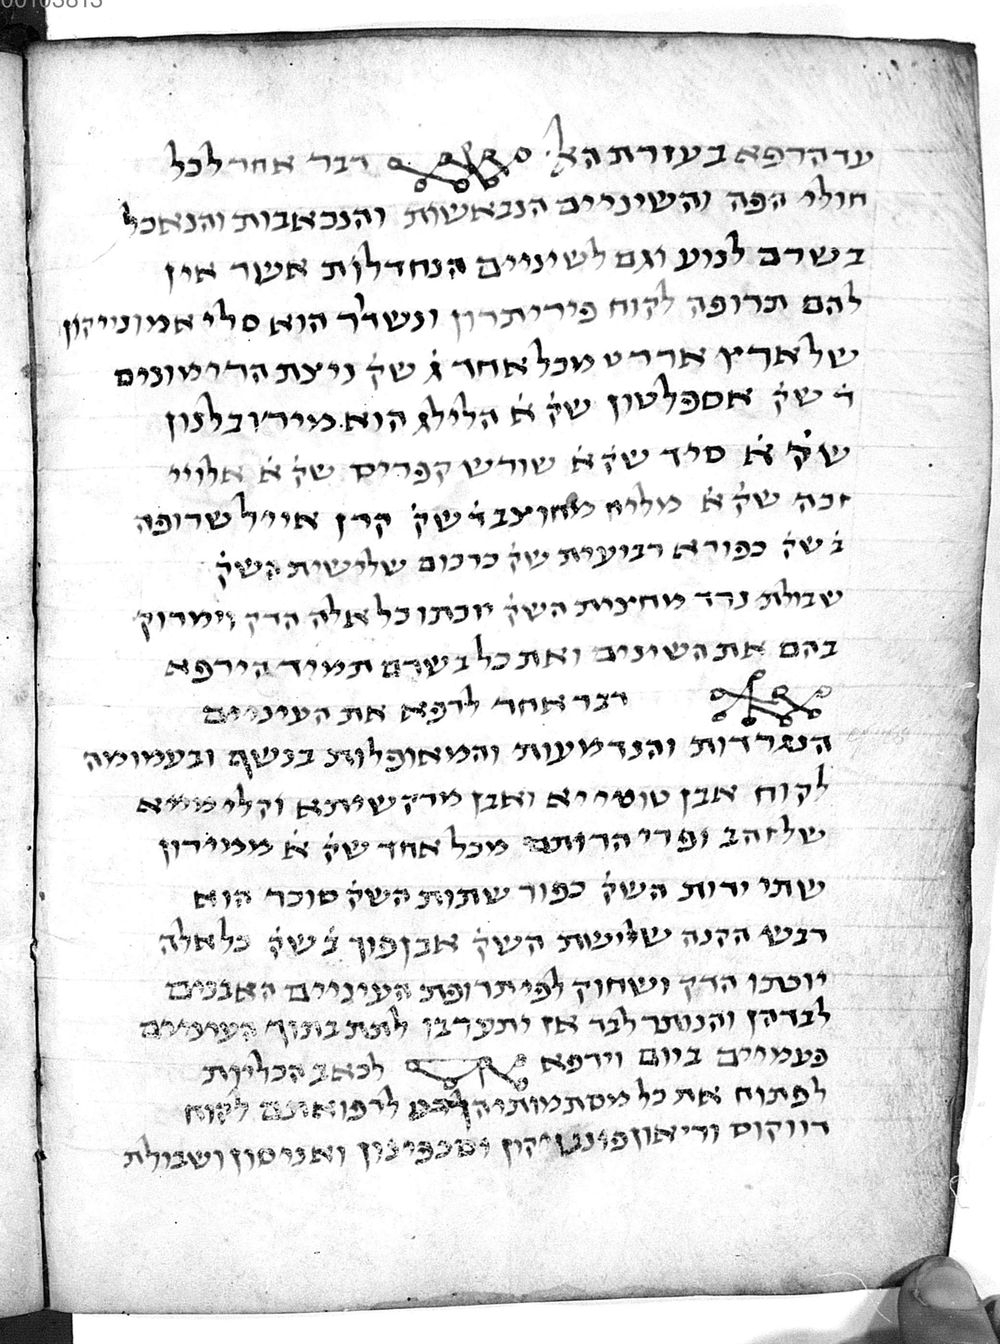 00103813
עד הרפא בעזרת האל׳ דבר אחר לכל
חולי הפה והשיניים הנבאשות והנכאבות והנאכל
בשרם לנוע וגם לשיניים הנחדלות אשר אין
להם תרופה לקוח פיריתרון ונשדר הוא סלי אמונייקון
של ארץ אררט מכל אחד ג׳ שק׳ ניצת הרימונים
ד׳ שק׳ אספלטון שק׳ א׳ הלילג הוא מירובלנון
שק׳ א׳ סיד שק׳ א׳ שורש קפריס שק׳ א׳ אלויי
זכה שק׳ א׳ מליח מחוצב ד׳ שק׳ קרן אייל שרופה
ב׳ שק׳ כפורא רביעית שק׳ כרכום שלישית השק׳
שבולת נרד מחצית השק׳ יוכתו כל אלה הדק וימרוק׳
בהם את השינים ואת כל בשרם תמיד הירפא
דבר אחר לרפא את העיניים
הנגרדות והנדמעות והמאופלות בנשף ובעמומה
לקוח אבן טוטייא ואבן מרקשיתא וקלימייא
של זהב ופרי הרותם מכל אחד שק׳ א׳ ממירון
שתי ידות השק׳ כפור שתות השק׳ סוכר הוא
דבש הקנה שלישות השק׳ אבן פוך ב׳ שק׳ כל אלה
יוכתו הדק ושחוק לפי תרופת העיניים האבנים
לבדהן והנותר לבד אז יתערבו לתת בתוך העיניים
פעמיים ביום וירפא לכאב הכליות
לפתוח את כל מסתמותיה לרפואתם לקוח
דווקוס ודיאון ואניסון ושבולת